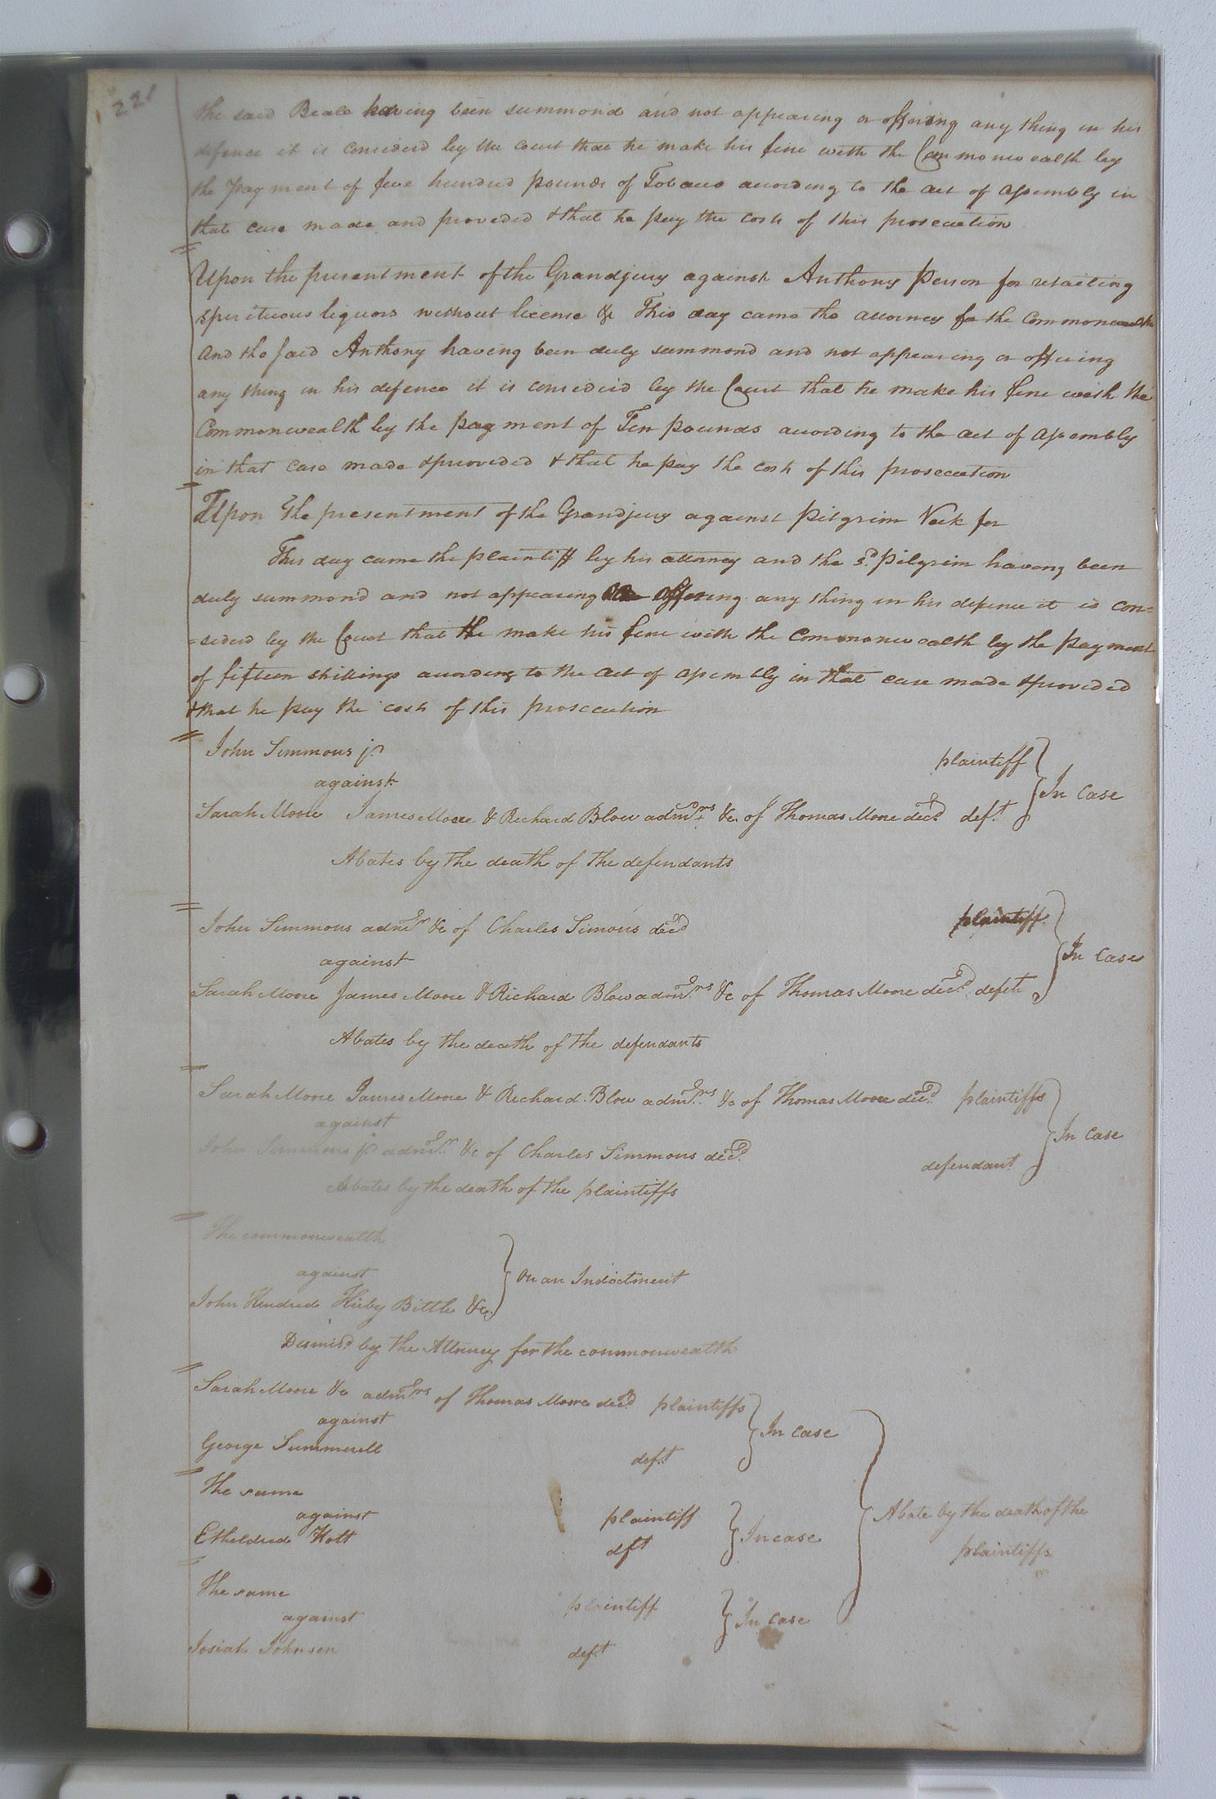 221
the said Beale having been summond and not appearing or offering any thing in his
defence it is considerd by the court that he make his fine with the Commonwealth by
the payment of five hundred pounds of Tobacco acording to the act of assembly in
that case made and provided & that he pay the costs of this prosecution
Upon the presentment of the Grandjury against Anthony Person for retailing
spirituous liquors without license &c This day came the attorney for the Commonwealth
And the said Anthony having been duly summond and not appearing or offering
any thing in his defence it is considerd by the Court that he make his fine with the
Commonwealth by the payment of Ten pounds acording to the act of assembly
in that case made & provided & that he pay the costs of this prosecution
Upon The presentment of the Grandjury against Pilgrim Vick for
This day came the plaintiff by his attorney and the sd. Pilgrim having been
duly summond and not appearing offering any thing in his defence it is con=
=siderd by the Court that he make his fine with the Commonwealth by the payment
of fifteen shillings acording to the act of assembly in that case made & provided
& that he pay the costs of this prosecution
John Simmons jr. plaintiff
against In case
Sarah Moore James Moore & Richard Blow admrs. &c. of Thomas Moore decd deft.
Abates by the death of the defendants
John Simmons admr &c of Charles Simons decd plaintiff
against In case
Sarah Moore James Moore & Richard Blow admrs. &c of Thomas Moore decd. defts
Abates by the death of the defendants
Sarah Moore James Moore & Richard Blow admrs. &c of Thomas Moore decd. plaintiffs
against In case
John Simmons jr admr. &c of Charles Simmons decd. defendant
Abates by the death of the plaintiffs
The commonwealth
against On an Indictment
John Kindred Kirby Bittle &c.
Dismisd by the Attorney for the commonwealth
Sarah Moore &c admrs of Thomas Moore decd plaintiffs
against In case
George Summerell deft
The same plaintiff
against In case
Etheldred Holt dft
Abate by the death of the
plaintiffs
The same plaintiff
against In case
Josiah Johnson deft